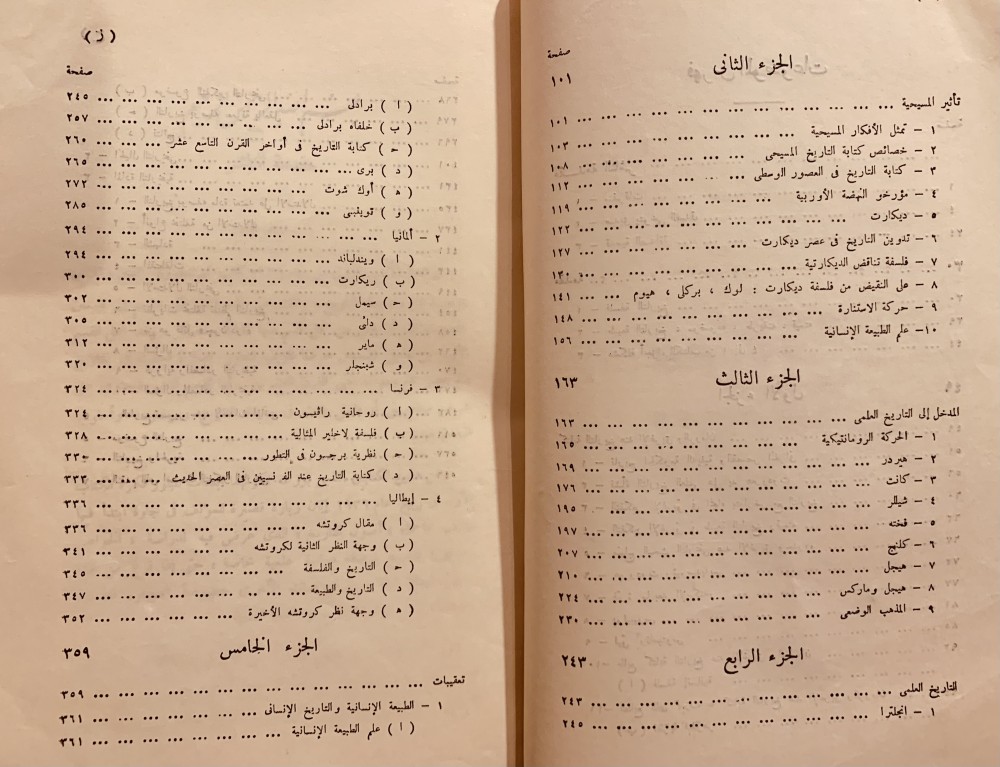 صفحة
الجزء الثانى ١٠١
تأثير المسيحية ... ١٠١
١ – تمثل الأفكار المسيحية ... ١٠٣
٢ – خصائص كتابة التاريخ المسيحى ... ١٠٨
٣ – كتابة التاريخ فى العصور الوسطى ... ١١٢
٤ – مؤرخو النهضة الأوربية ... ١١٩
٥ – ديكارت ... ١٢٢
٦ – تدوين التاريخ فى عصر ديكارت ... ١٢٧
٧ – فلسفة تناقض الديكارتية ... ١٣٠
٨ – على النقيض من فلسفة ديكارت : لوك ، بركلى ، هيوم ... ١٤١
٩ – حركة الاستنارة ... ١٤٨
١٠– علم الطبيعة الإنسانية ... ١٥٦
الجزء الثالث ١٦٣
المدخل إلى التاريخ العلمى ... ١٦٣
١ – الحركة الرومانتيكية ... ١٦٥
٢ – هيردر ... ١٦٩
٣ – كانت ... ١٧٦
٤ – شيللر ... ١٩٥
٥ – فخته ... ١٩٧
٦ – كلنج ... ٢٠٧
٧ – هيجل ... ٢١٠
٨ – هيجل وماركس ... ٢٢٤
٩ – المذهب الوضعى ... ٢٣٠
الجزء الرابع ٢٤٣
التاريخ العلمى ... ٢٤٣
١ – انجلترا ... ٢٤٥
( ز )
صفحة
( ا ) برادلى ... ٢٤٥
( ب ) خلفاء برادلى ... ٢٥٧
( ح ) كتابة التاريخ فى أواخر القرن التاسع عشر ... ٢٦٠
( د ) برى ... ٢٦٥
( ه ) أوك شوت ... ٢٧٢
( و ) توينبى ... ٢٨٥
٢ – ألمانيا ... ٢٩٤
( ا ) ويندلباند ... ٢٩٤
( ب ) ريكارت ... ٣٠٠
( ح ) سيمل ... ٣٠٢
( د ) دلثى ... ٣٠٥
( ه ) ماير ... ٣١٢
( و ) شبنجلر ... ٣٢٠
٣ – فرنسا ... ٣٢٤
( ا ) روحانية راڤيسون ... ٣٢٤
( ب ) فلسفة لاخلير المثالية ... ٣٢٨
( ح ) نظرية برجسون فى التطور ... ٣٣٠
( د ) كتابة التاريخ عند الفرنسيين فى العصر الحديث ... ٣٣٣
٤ – إيطاليا ... ٣٣٦
( ا ) مقال كروتشه ... ٣٣٦
( ب ) وجهة النظر الثانية لكروتشه ... ٣٤١
( ح ) التاريخ والفلسفة ... ٣٤٥
( د ) التاريخ والطبيعة ... ٣٤٧
( ه ) وجهة نظر كروتشه الأخيرة ... ٣٥٢
الجزء الخامس ٣٥٩
تعقيبات ... ٣٥٩
١ – الطبيعة الإنسانية والتاريخ الإنسانى ... ٣٦١
( ا ) علم الطبيعة الإنسانية ... ٣٦١